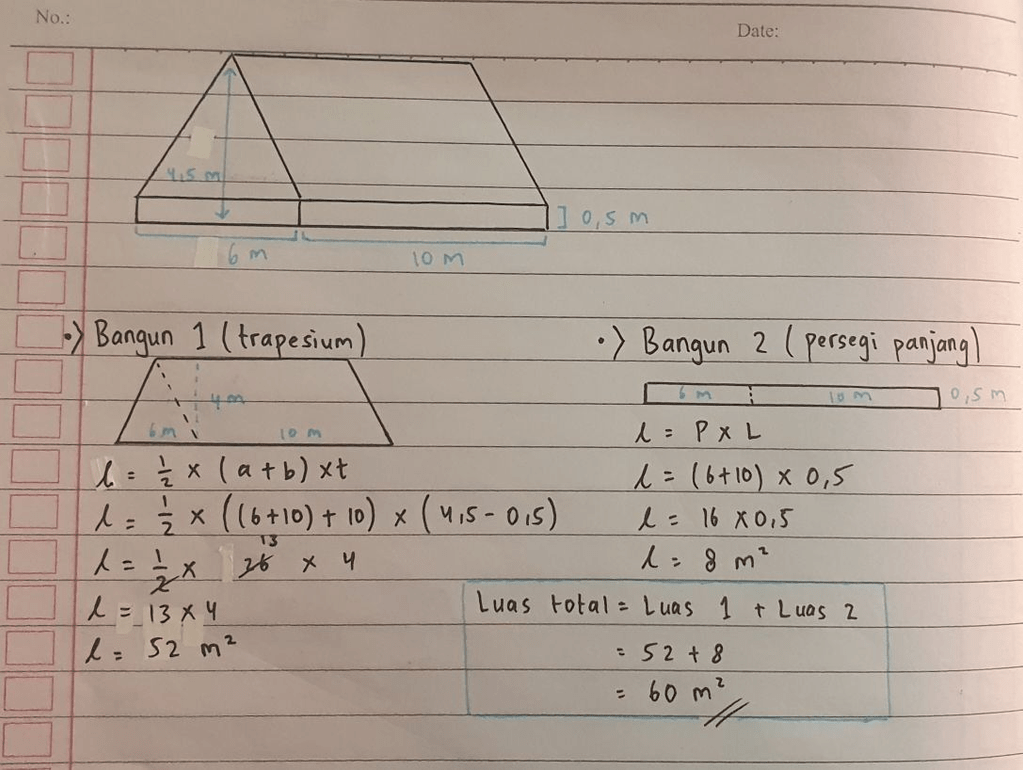 No.:
Date:
4,5 m
] 0,5 m
6 m
10 m
•) Bangun 1 (trapesium)
4 m
6 m
10 m
l = 1/2 × (a + b) × t
l = 1/2 × ((6+10) + 10) × (4,5 - 0,5)
13
l = 1/2 × 26 × 4
l = 13 × 4
l = 52 m²
•) Bangun 2 (persegi panjang)
6 m 10 m 0,5 m
l = P × L
l = (6+10) × 0,5
l = 16 × 0,5
l = 8 m²
Luas total = Luas 1 + Luas 2
= 52 + 8
= 60 m² //